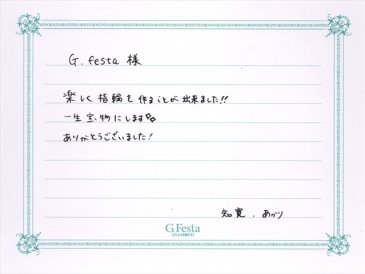 G.festa 様
楽しく指輪を作ることが出来ました!!
一生宝物にします
ありがとうございました!
知寛、あかり
G.Festa